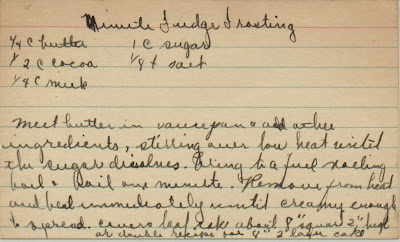 Minute Fudge Frosting
1/4 C butter 1 C sugar
1/2 C cocoa 1/8 t salt
1/4 C milk
Melt butter in saucepan & add other
ingredients, stirring over low heat until
the sugar disolves. Bring to a full rolling
boil & boil one minute. Remove from heat
and beat immediately until creamy enough
to spread. Covers loaf cake about 8" square 2" high
or double recipe for 8" 2 layer cake